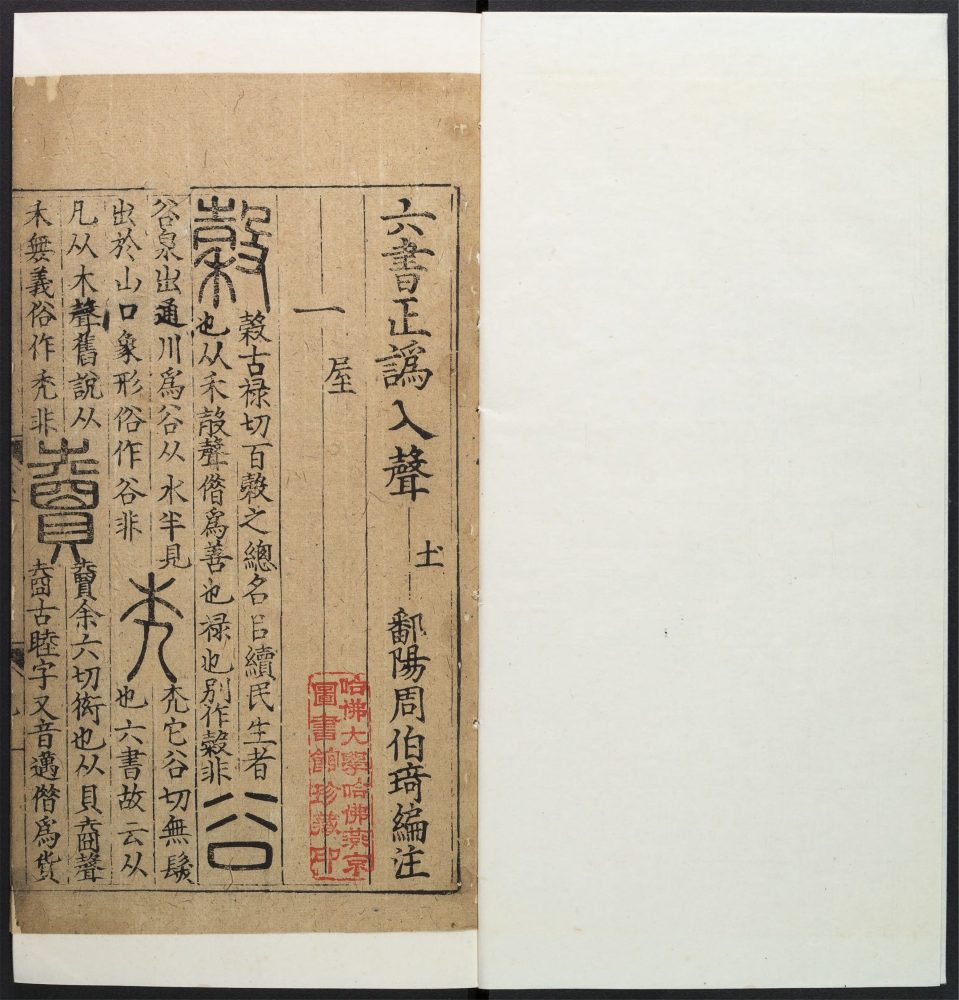 六書正譌入聲 鄱陽周伯琦編注
一屋
穀
榖古禄切百榖之總名㠯續民生者
也从禾㱿聲僭爲善也禄也别作榖非
谷
谷泉出通川爲谷从水半見
出於山口象形俗作谷非
禿
禿它谷切無髮
也六書故云从
凡从木聲舊說从
禾無義俗作禿非
𧶠
𧶠余六切衒也从貝𡍬聲
𡍬古睦字又音邁僭爲貨
哈佛大學哈佛燕京
圖書館珍藏印